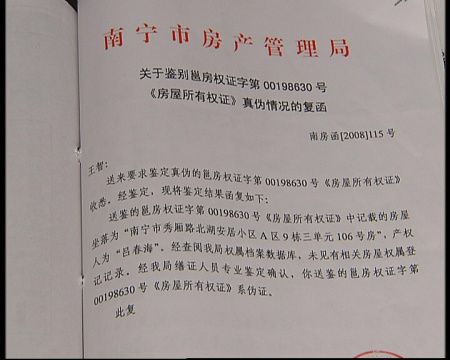 南宁市房产管理局
关于鉴别邕房权证字第00198630号
《房屋所有权证》真伪情况的复函
南房函[2008]115号
王智：
送来要求鉴定真伪的邕房权证字第00198630号《房屋所有权证》
收悉。经鉴定，现将鉴定结果函复如下：
送鉴的邕房权证字第00198630号《房屋所有权证》中记载的房屋
坐落为“南宁市秀厢路北湖安居小区A区9栋三单元106号房”，产权
人为“吕春海”。经查阅我局权属档案数据库，未见有相关房屋权属登
记记录。经我局缮证人员专业鉴定确认，你送鉴的邕房权证字第
00198630号《房屋所有权证》系伪证。
此复